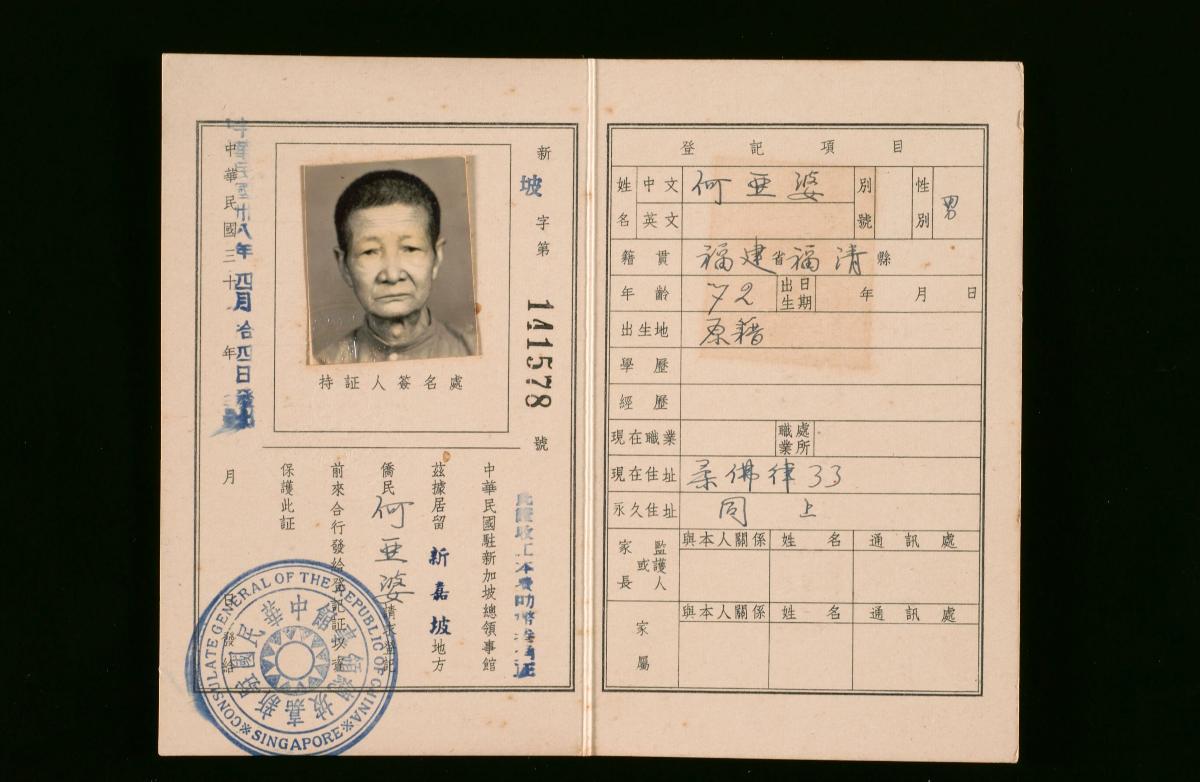 新坡字第141578號
持証人簽名處
中華民國駐新加坡總領事館
茲據居留新嘉坡地方
僑民何亞婆請求登記
前來合行發給登記証以資
保護此証
中華民國卅八年四月拾四日發
中華民國三十 年 月 日發給
CONSULATE GENERAL OF THE REPUBLIC OF CHINA
SINGAPORE
登記項目
姓名 中文 何亞婆 別號 性別 男
英文
籍貫 福建省福清縣
年齡 72 出生日期 年 月 日
出生地 原籍
學歷
經歷
現在職業 職業處所
現在住址 柔佛律33
永久住址 同上
家長或監護人 與本人關係 姓名 通訊處
家屬 與本人關係 姓名 通訊處